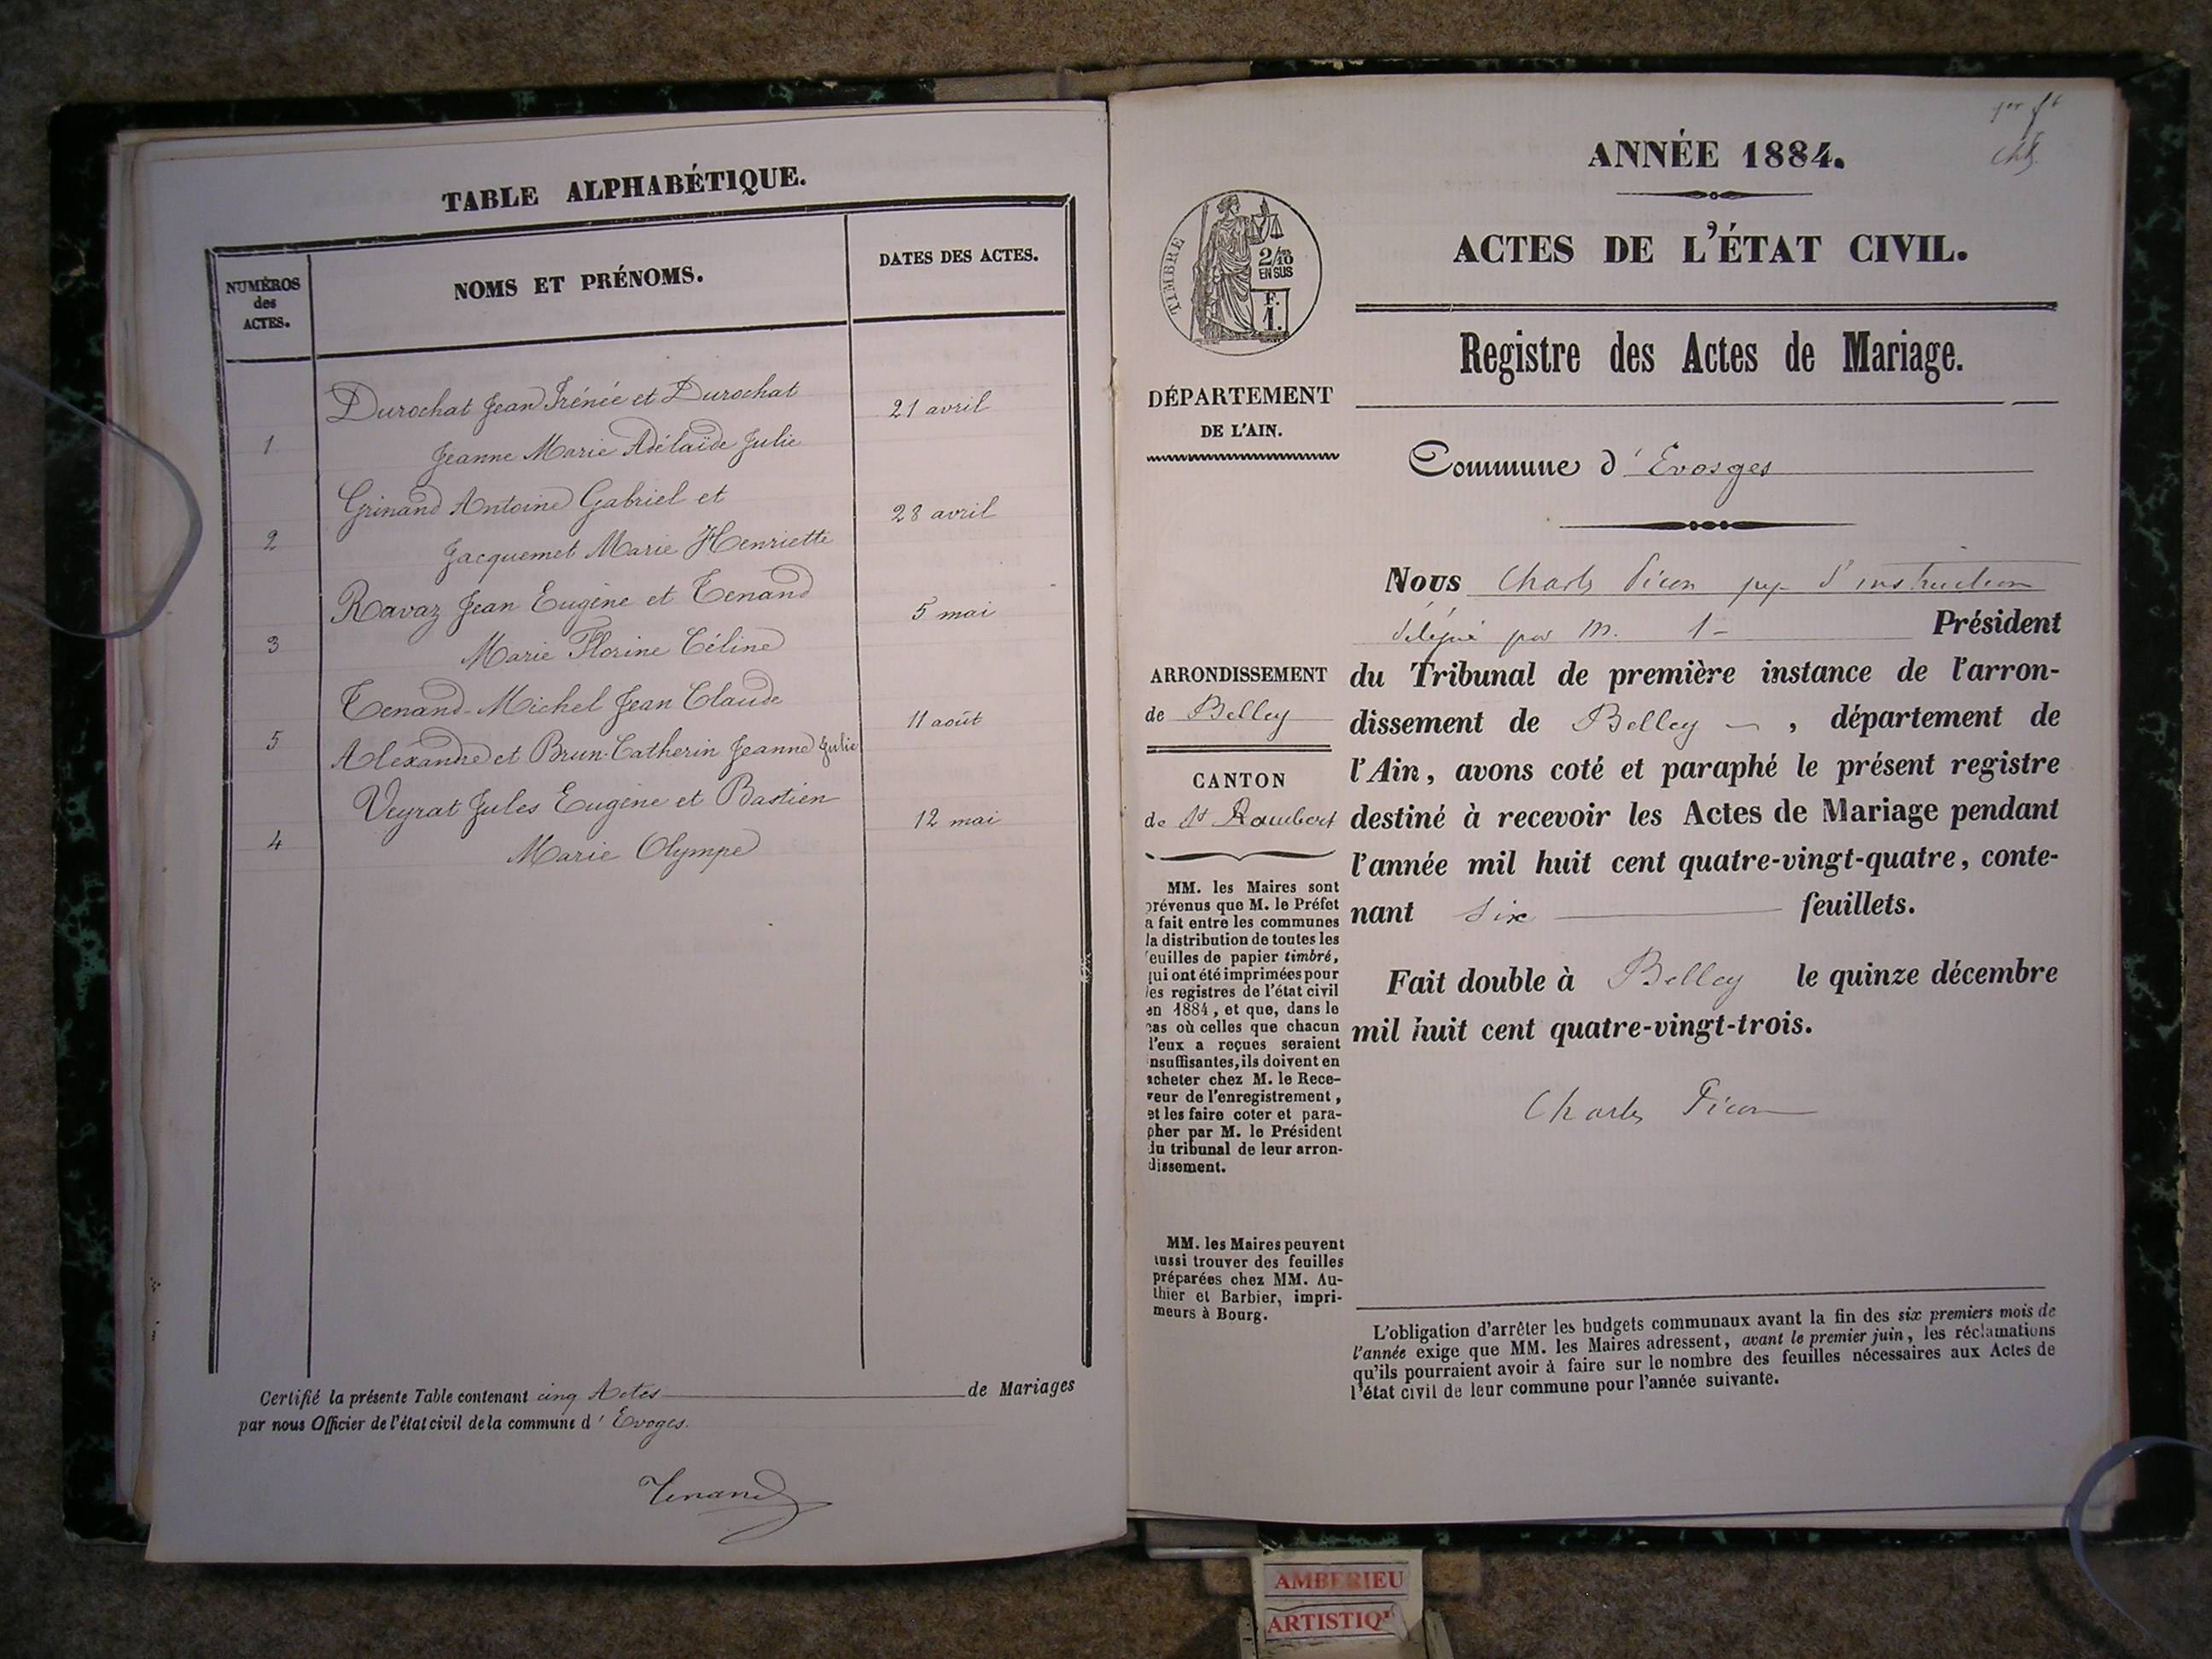 TABLE ALPHABÉTIQUE.
NUMÉROS
des
ACTES.
NOMS ET PRÉNOMS.
DATES DES ACTES.
Durochat Jean Irénée et Durochat
21 avril
1
Jeanne Marie Adélaïde Julie
Grinand Antoine Gabriel et
28 avril
2
Jacquemet Marie Henriette
Ravaz Jean Eugène et Tenand
5 mai
3
Marie Florine Céline
Tenand-Michel Jean Claude
11 août
5
Aléxandre et Brun-Catherin Jeanne Julie
Veyrat Jules Eugène et Bastien
12 mai
4
Marie Olympe
Certifié la présente Table contenant cinq Actes de Mariages
par nous Officier de l'état civil de la commune d' Evoges.
Tenand
ANNÉE 1884.
ACTES DE L'ÉTAT CIVIL.
TIMBRE
2/10
EN SUS
F.
1.
Registre des Actes de Mariage.
DÉPARTEMENT
DE L'AIN.
Commune d' Evosges
Nous Charles Picon juge d'instruction
délégué par M. l- Président
ARRONDISSEMENT
de Belley
CANTON
de St Rambert
du Tribunal de première instance de l'arron-
dissement de Belley, département de
l'Ain, avons coté et paraphé le présent registre
destiné à recevoir les Actes de Mariage pendant
l'année mil huit cent quatre-vingt-quatre, conte-
nant six feuillets.
Fait double à Belley le quinze décembre
mil huit cent quatre-vingt-trois.
Charles Picon
MM. les Maires sont
prévenus que M. le Préfet
a fait entre les communes
la distribution de toutes les
feuilles de papier timbré,
qui ont été imprimées pour
les registres de l'état civil
en 1884, et que, dans le
cas où celles que chacun
d'eux a reçues seraient
insuffisantes, ils doivent en
acheter chez M. le Rece-
veur de l'enregistrement,
et les faire coter et para-
pher par M. le Président
du tribunal de leur arron-
dissement.
MM. les Maires peuvent
aussi trouver des feuilles
préparées chez MM. Au-
thier et Barbier, impri-
meurs à Bourg.
L'obligation d'arrêter les budgets communaux avant la fin des six premiers mois de
l'année exige que MM. les Maires adressent, avant le premier juin, les réclamations
qu'ils pourraient avoir à faire sur le nombre des feuilles nécessaires aux Actes de
l'état civil de leur commune pour l'année suivante.
AMBERIEU
ARTISTIQ